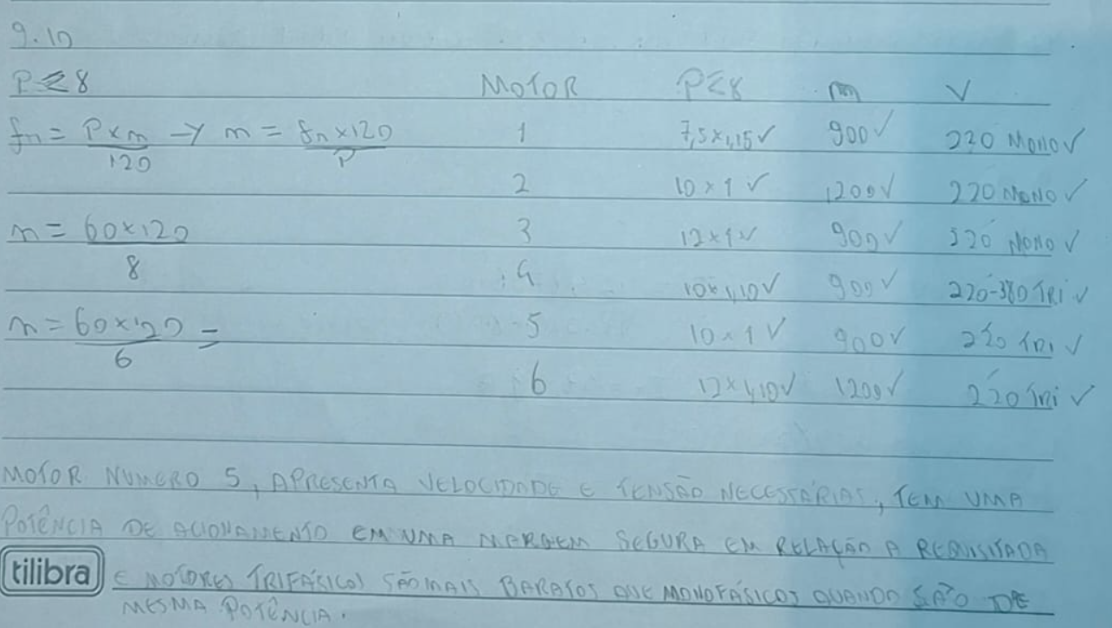 9.10
P≤8 MOTOR P≤8 m V
fn = P×m/120 → m = fn×120/P 1 7,5×1,15✓ 900✓ 220 MONO✓
2 10×1✓ 1200✓ 220 MONO✓
m = 60×120/8 3 12×1✓ 900✓ 220 MONO✓
4 10×1,10✓ 900✓ 220-380 TRI✓
m = 60×120/6 = 5 10×1✓ 900✓ 220 TRI✓
6 12×1,10✓ 1200✓ 220 TRI✓
MOTOR NUMERO 5, APRESENTA VELOCIDADE E TENSÃO NECESSÁRIAS, TEM UMA
POTÊNCIA DE ACIONAMENTO EM UMA MARGEM SEGURA EM RELAÇÃO A REQUISITADA
tilibra E MOTORES TRIFÁSICOS SÃO MAIS BARATOS QUE MONOFÁSICOS QUANDO SÃO DE
MESMA POTÊNCIA.